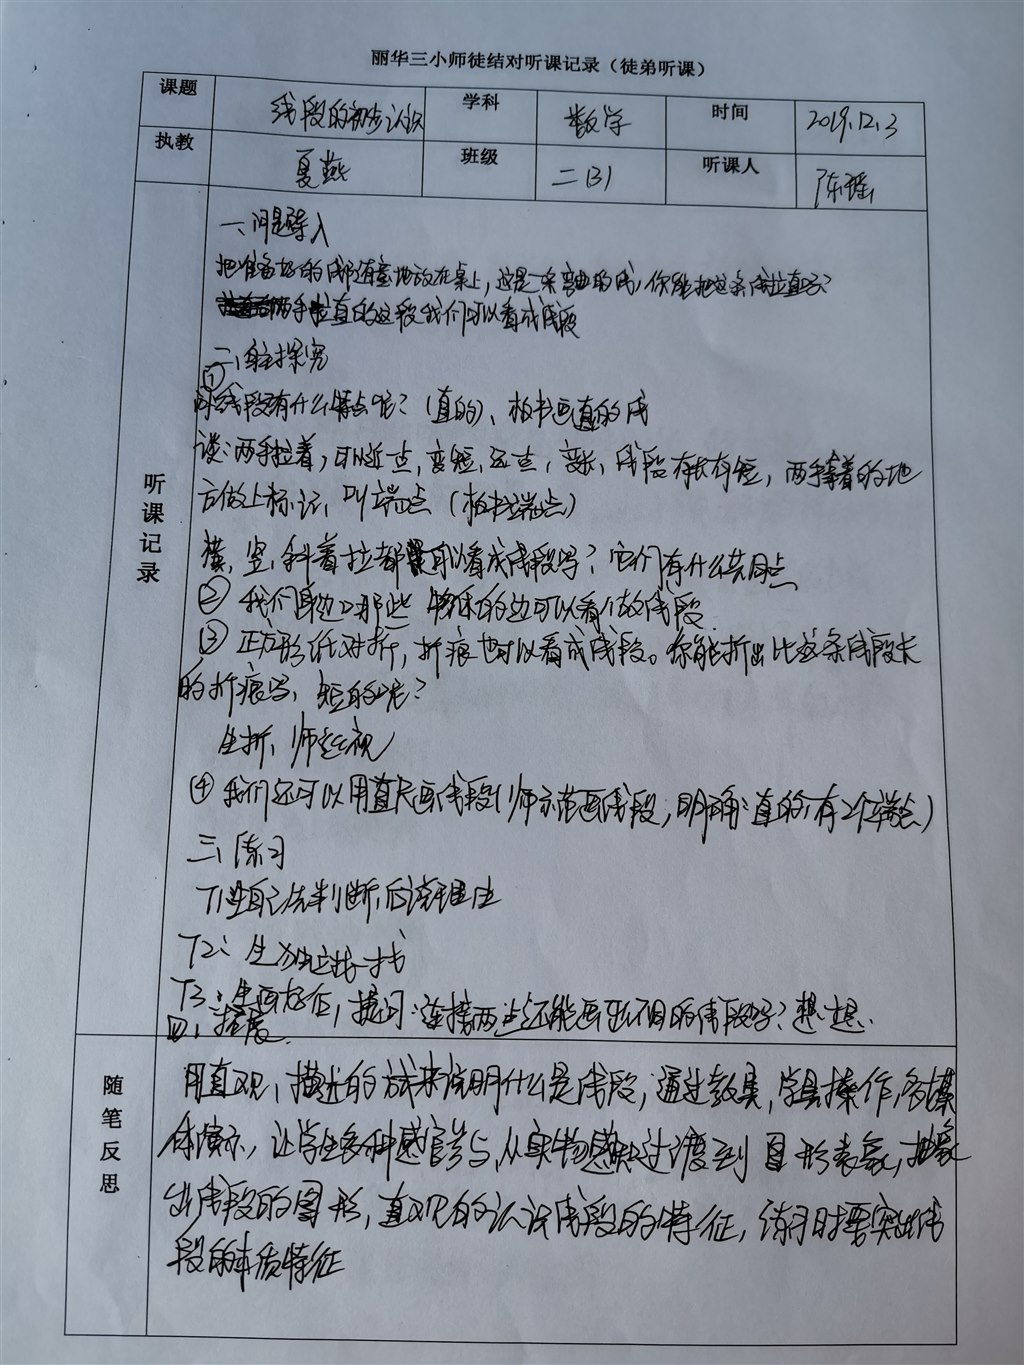 丽华三小师徒结对听课记录（徒弟听课）
课题 线段的初步认识 学科 数学 时间 2019.12.3
执教 夏燕 班级 二（3） 听课人 陈瑶
听课记录
一、问题导入
把准备好的线随意地放在桌上，这是一条弯曲的线，你能把这条线拉直吗？
两手拉直的这段我们可以看成线段
二、自主探究
①
问：线段有什么特点呢？（直的）、板书画直的线
谈：两手拉着，可以近点，变短，远点，变长，线段有长有短，两手拿着的地
方做上标记，叫端点（板书端点）
横，竖，斜着拉都可以看成线段吗？它们有什么共同点
② 我们身边哪些物体的边可以看做线段
③ 正方形纸对折，折痕也可以看成线段。你能折出比这条线段长
的折痕吗，短的呢？
生折，师巡视
④ 我们还可以用直尺画线段（师示范画线段，明确：直的，有2个端点）
三、练习
T1：生自己先判断，后说理由
T2：生独立找一找
T3：生画好后，提问：连接两点还能画出不同的线段吗？想一想.
四、拓展
随笔反思
用直观，描述的方式来说明什么是线段，通过教具，学具操作，多媒
体演示，让学生多种感官参与，从实物感知过渡到图形表象，抽象
出线段的图形，直观的认识线段的特征，练习时要突出线
段的本质特征